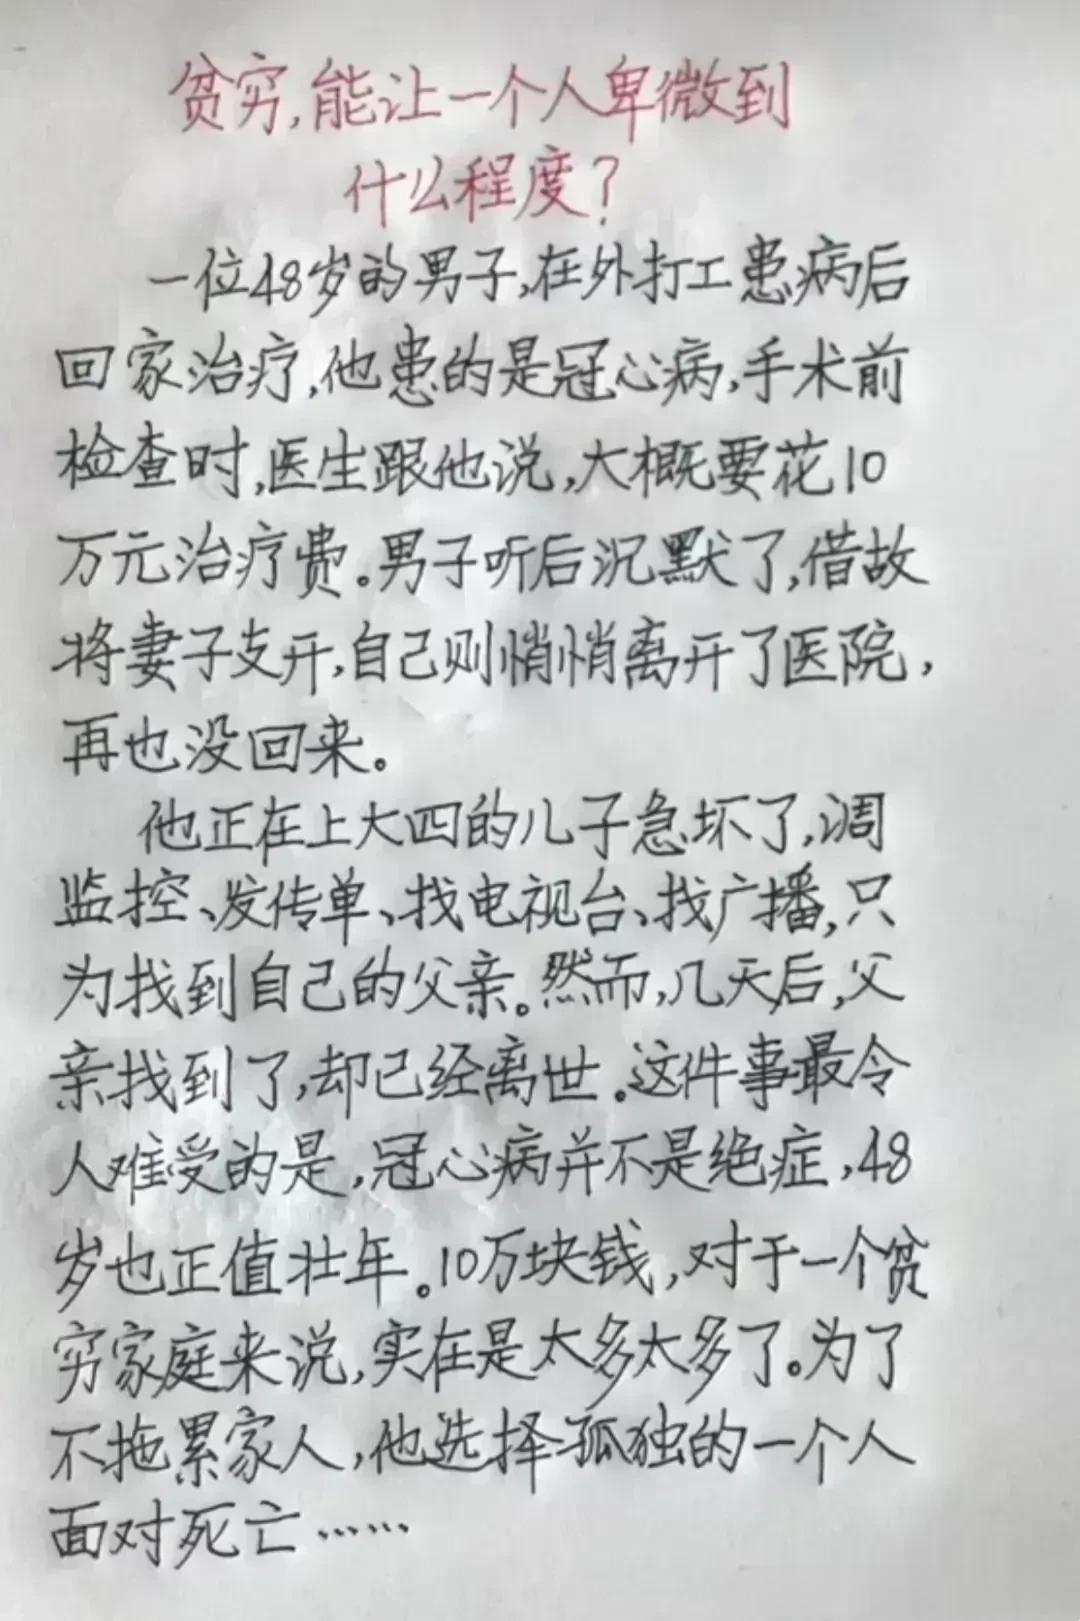 贫穷,能让一个人卑微到
什么程度?
一位48岁的男子,在外打工患病后
回家治疗,他患的是冠心病,手术前
检查时,医生跟他说,大概要花10
万元治疗费。男子听后沉默了,借故
将妻子支开,自己则悄悄离开了医院,
再也没回来。
他正在上大四的儿子急坏了,调
监控、发传单、找电视台、找广播,只
为找到自己的父亲。然而,几天后,父
亲找到了,却已经离世。这件事最令
人难受的是,冠心病并不是绝症,48
岁也正值壮年。10万块钱,对于一个贫
穷家庭来说,实在是太多太多了。为了
不拖累家人,他选择孤独的一个人
面对死亡……